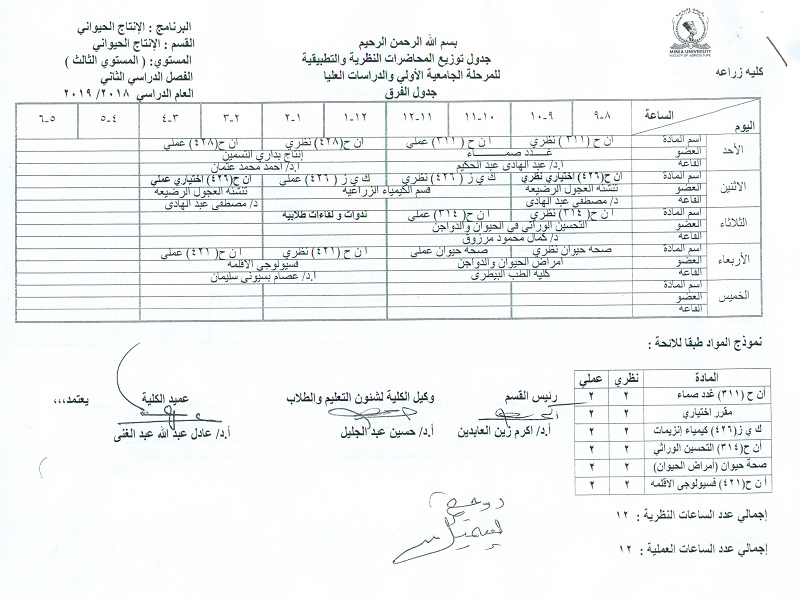 MINIA UNIVERSITY
FACULTY OF AGRICULTURE
كليه زراعه
بسم الله الرحمن الرحيم
جدول توزيع المحاضرات النظرية والتطبيقية
للمرحلة الجامعية الأولي والدراسات العليا
جدول الفرق
البرنامج : الإنتاج الحيواني
القسم : الإنتاج الحيواني
المستوي: ( المستوي الثالث )
الفصل الدراسي الثاني
العام الدراسي ٢٠١٨/ ٢٠١٩
اليوم الساعة ٨-٩ ٩-١٠ ١٠-١١ ١١-١٢ ١٢-١ ١-٢ ٢-٣ ٣-٤ ٤-٥ ٥-٦
الأحد اسم المادة أن ح(٣١١) نظري أن ح(٣١١) عملي أن ح(٤٢٨) نظري أن ح(٤٢٨) عملي
العضو غدد صماء إنتاج بداري التسمين
القاعة أ.د/ عبد الهادى عبد الحكيم أ.د/ احمد محمد عثمان
الاثنين اسم المادة أن ح(٤٢٦) اختياري نظري ك ي ز( ٤٢٦) نظري ك ي ز( ٤٢٦) عملي أن ح(٤٢٦) اختياري عملي
العضو تنشئة العجول الرضيعه قسم الكيمياء الزراعيه تنشئة العجول الرضيعه
القاعة د/ مصطفى عبد الهادى د/ مصطفى عبد الهادى
الثلاثاء اسم المادة أن ح(٣١٤) نظري أن ح(٣١٤) عملي ندوات و لقاءات طلابيه
العضو التحسين الوراثي فى الحيوان والدواجن
القاعة د/ كمال محمود مرزوق
الأربعاء اسم المادة صحة حيوان نظري صحة حيوان عملي أن ح(٤٢١) نظري أن ح(٤٢١) عملي
العضو أمراض الحيوان والدواجن فسيولوجى الاقلمه
القاعة كلية الطب البيطرى أ.د/ عصام بسيونى سليمان
الخميس اسم المادة
العضو
القاعة
نموذج المواد طبقا للائحة :
المادة نظري عملي
أن ح (٣١١) غدد صماء ٢ ٢
مقرر اختياري ٢ ٢
ك ي ز(٤٢٦) كيمياء إنزيمات ٢ ٢
أن ح(٣١٤) التحسين الوراثي ٢ ٢
صحة حيوان (أمراض الحيوان) ٢ ٢
أ ن ح(٤٢١) فسيولوجى الاقلمه ٢ ٢
إجمالي عدد الساعات النظرية : ١٢
إجمالي عدد الساعات العملية : ١٢
رئيس القسم وكيل الكلية لشئون التعليم والطلاب يعتمد،،، عميد الكلية
أ.د/ اكرم زين العابدين أ.د/ حسين عبد الجليل أ.د/ عادل عبد الله عبد الغنى